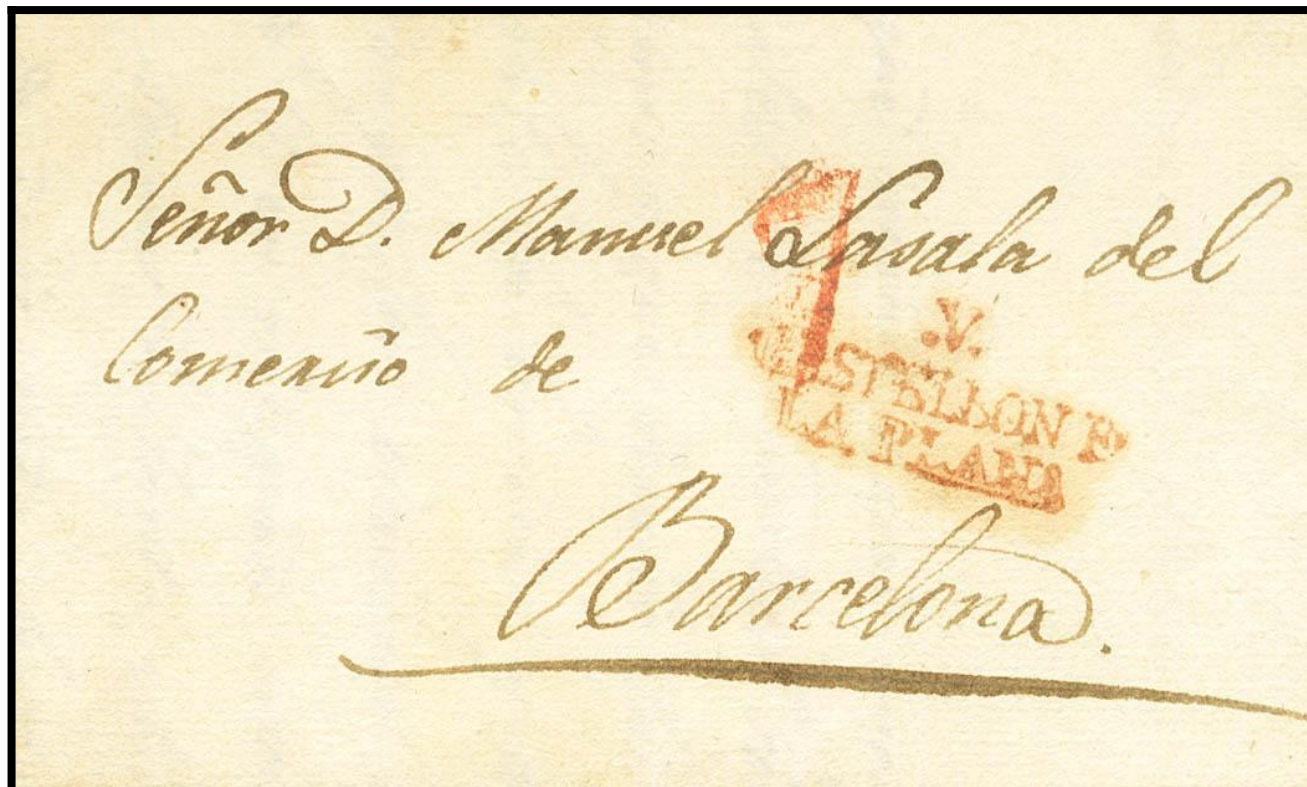 Señor D. Manuel Lasala del
Comercio de
.V.
CASTELLON F
LA PLANA
Barcelona.